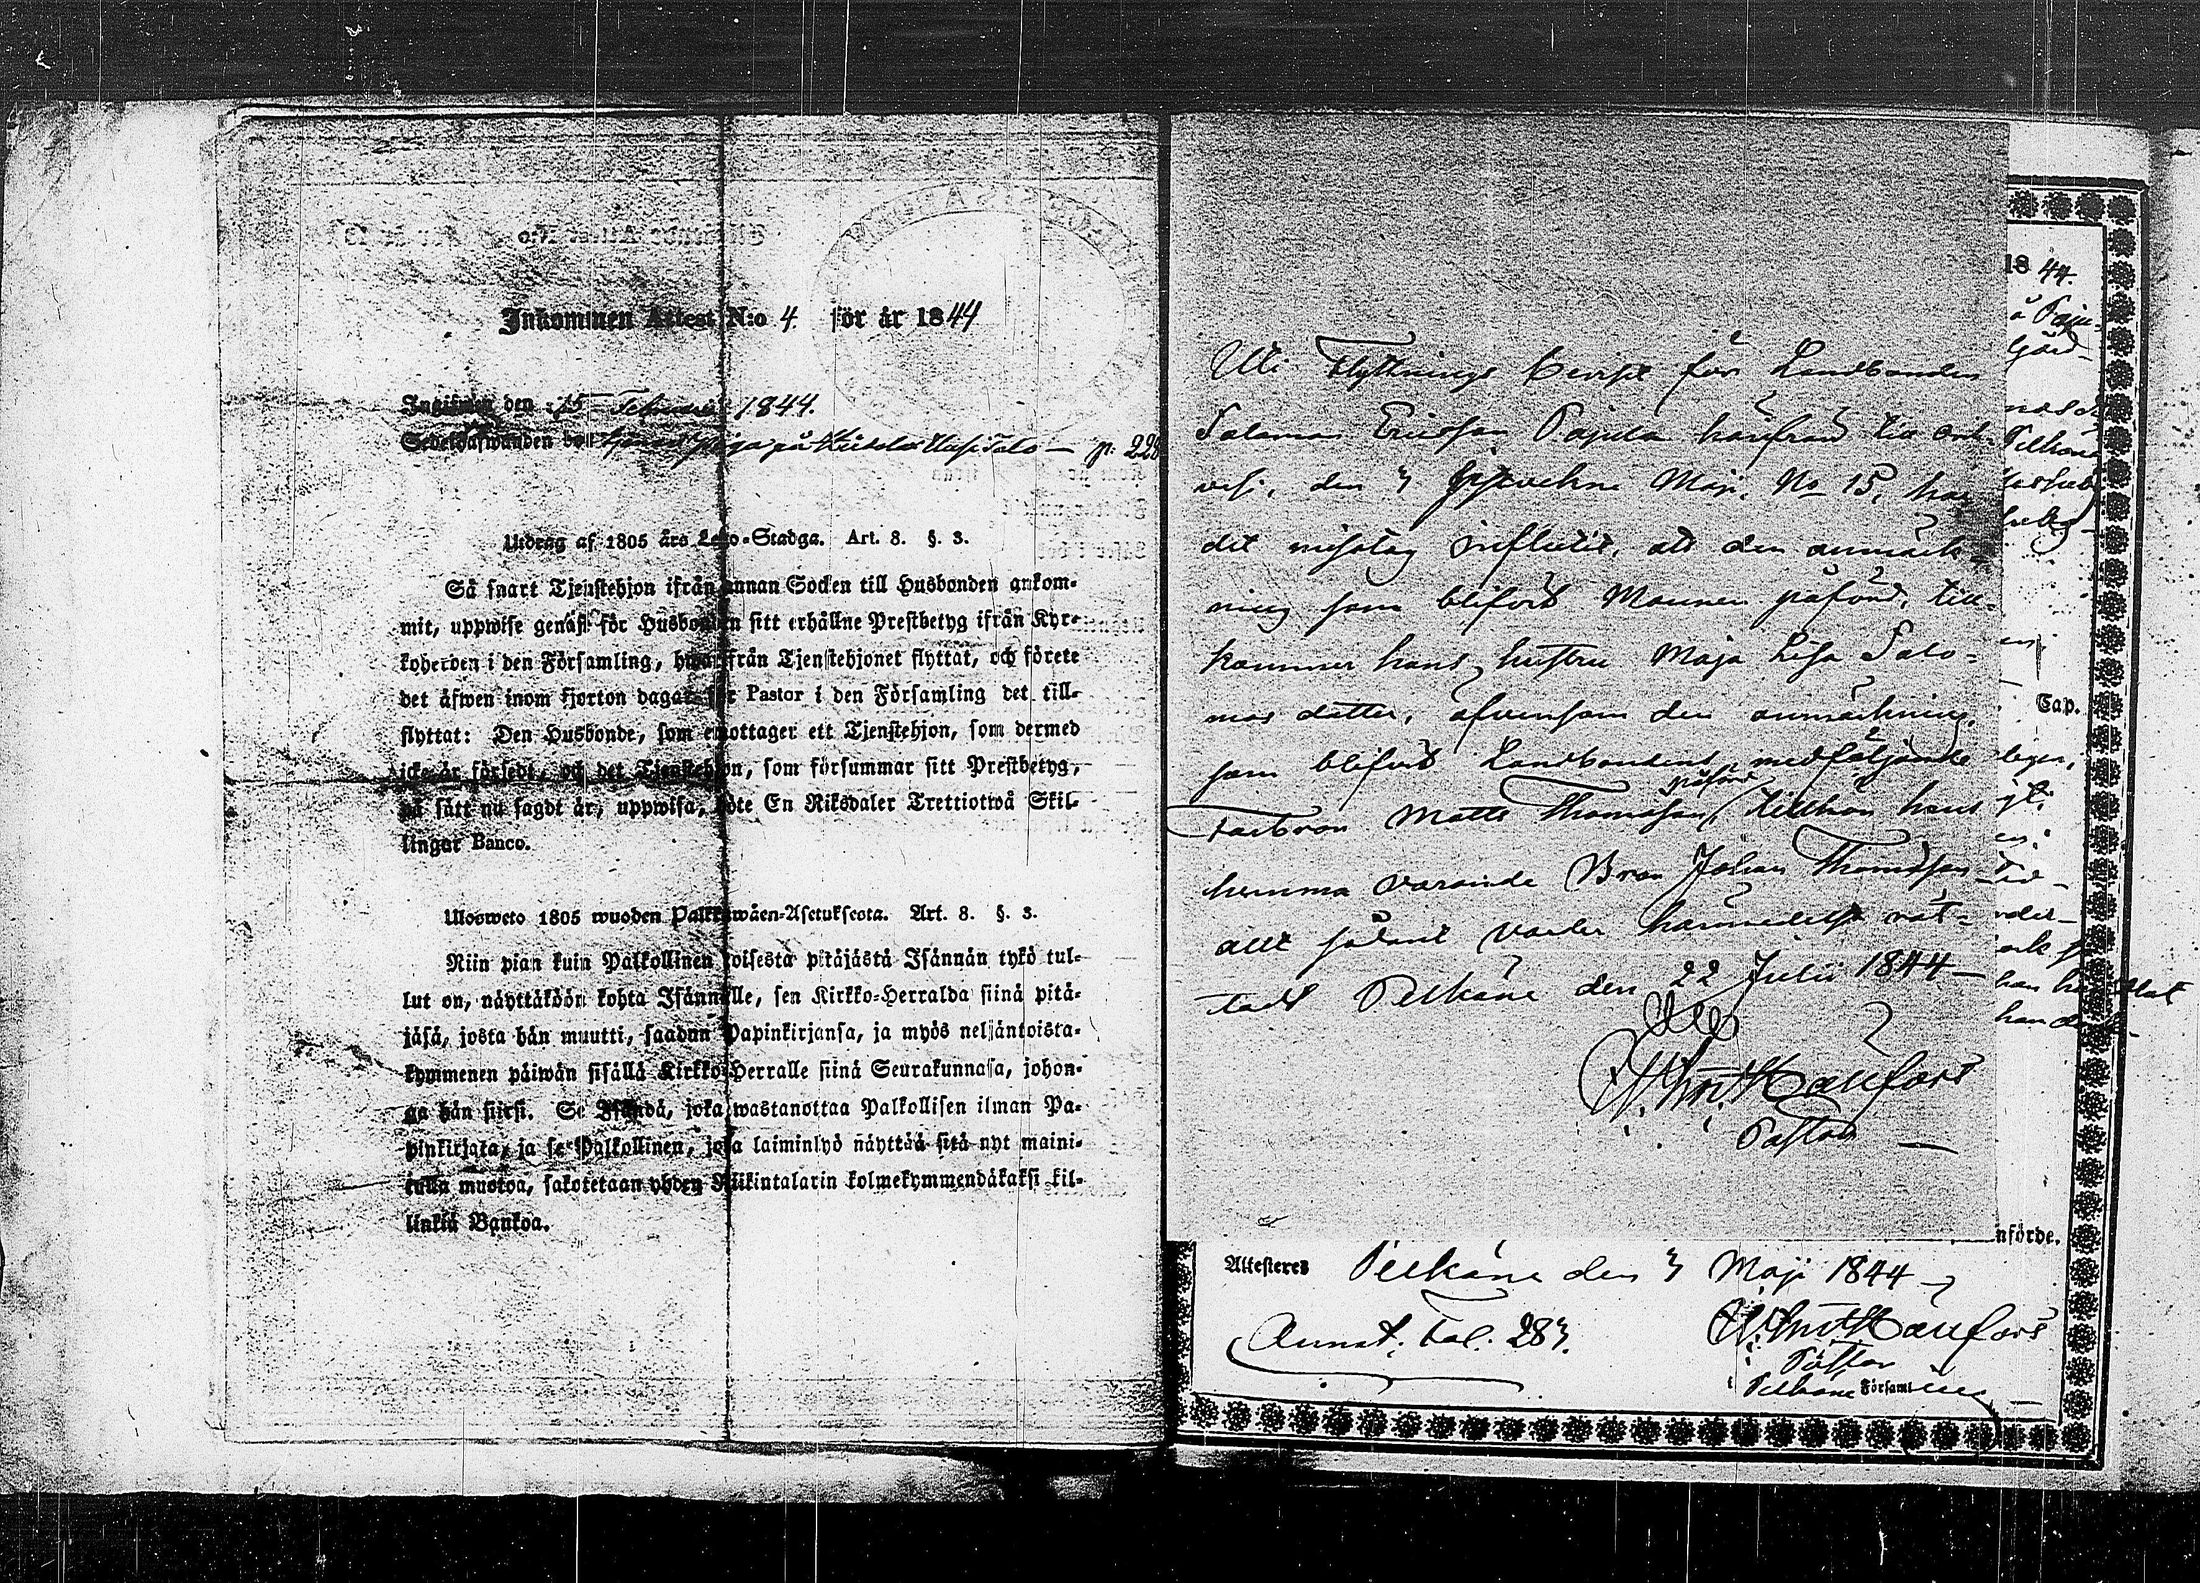 Inkommen Attest N:o 4 för år 1844
Ingifwen den 15 Februarii 1844.
Sedelhafwanden på Uusi Talo — p. 228
Utdrag af 1805 års Lego-Stadga. Art. 8. §. 3.
Så snart Tjenstehjon ifrån annan Socken till Husbonden ankom-
mit, uppwise genast för Husbonden sitt erhållne Prestbetyg ifrån Kyr-
koherden i den Församling, hwarifrån Tjenstehjonet flyttat, och förete
det äfwen inom fjorton dagar för Pastor i den Församling det till-
flyttat: Den Husbonde, som emottager ett Tjenstehjon, som dermed
icke är försedt, och det Tjenstehjon, som försummar sitt Prestbetyg,
på sätt nu sagdt är, uppwisa, böte En Riksdaler Trettiotwå Skil-
lingar Banco.
Ulosweto 1805 wuoden Palkkawäen-Asetuksesta. Art. 8. §. 3.
Niin pian kuin Palkollinen toisesta pitäjästä Isännän tykö tul-
lut on, näyttäköön kohta Isännälle, sen Kirkko-Herralda siinä pitä-
jäsä, josta hän muutti, saadun Papinkirjansa, ja myös neljäntoista-
kymmenen päiwän sisällä Kirkko-Herralle siinä Seurakunnasa, johon-
ga hän siirsi. Se Isändä, joka wastanottaa Palkollisen ilman Pa-
pinkirjata, ja se Palkollinen, joka laiminlyö näyttää sitä nyt maini-
tulla muotoa, sakotetaan yhden Riikintalarin kolmekymmendäkaksi kil-
linkiä Bankoa.
Uti Flyttnings Beviset för Landbonden
Salomon Ericsson Pajula härifrån till
den 7 Maji No 15, har
det misstag influtit, att den anmärk-
ning som blifvit Mannen påförd, till-
kommer hans hustru Maja Lisa Salo-
mos dotter, äfvensom den anmärkning,
som blifvit Landbondens medföljande
Farbron Matts Thomasson påförd, tillhör hans
hemma varande Bror Johan Thomasson
allt sådant varder härmedelst rät-
tadt Pelkäne den 22 Julii 1844 —
Pastor —
18 44.
Pelkäne
Cap.
nförde.
Attesteres Pelkäne den 7 Maji 1844
Annot. Fol. 287.
Pastor
Pelkäne Församl